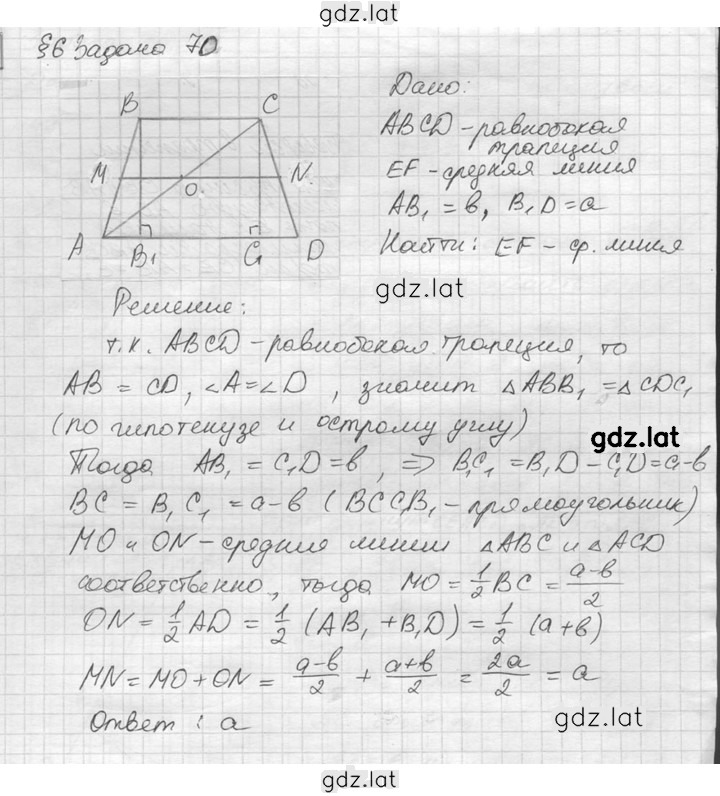 gdz.lat
§6 Задача 70
B C
M N
O
A B₁ C₁ D
Дано:
ABCD - равнобокая
трапеция
EF - средняя линия
AB₁ = b, B₁D = a
Найти: EF - ср. линия
gdz.lat
Решение:
т.к. ABCD - равнобокая трапеция, то
AB = CD, ∠A = ∠D, значит △ABB₁ = △CDC₁
(по гипотенузе и острому углу)
gdz.lat
Тогда AB₁ = C₁D = b, ⇒ B₁C₁ = B₁D - C₁D = a-b
BC = B₁C₁ = a-b (BCC₁B₁ - прямоугольник)
MO и ON - средние линии △ABC и △ACD
соответственно, тогда MO = 1/2 BC = (a-b)/2
ON = 1/2 AD = 1/2 (AB₁ + B₁D) = 1/2 (a+b)
MN = MO + ON = (a-b)/2 + (a+b)/2 = 2a/2 = a
Ответ: a
gdz.lat
gdz.lat